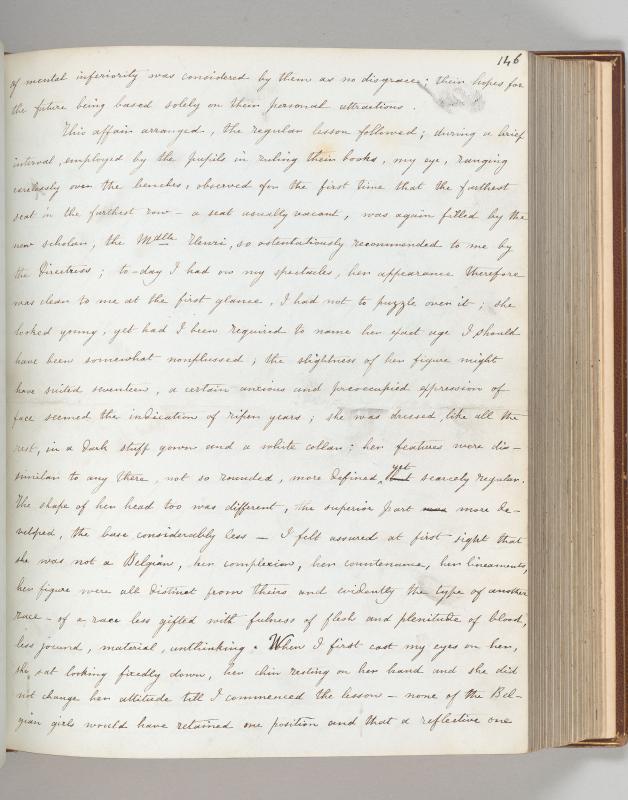 146
of mental inferiority was considered by them as no disgrace; their hopes for
the future being based solely on their personal attractions.
This affair arranged, the regular lesson followed; during a brief
interval, employed by the pupils in ruling their books, my eye, ranging
carelessly over the benches, observed for the first time that the furthest
seat in the furthest row – a seat usually vacant, was again filled by the
new scholar, the Mdlle Henri, so ostentatiously recommended to me by
the Directress; to-day I had on my spectacles, her appearance therefore
was clear to me at the first glance, I had not to puzzle over it; she
looked young, yet had I been required to name her exact age I should
have been somewhat nonplussed; the slightness of her figure might
have suited seventeen, a certain anxious and preoccupied expression of
face seemed the indication of riper years; she was dressed, like all the
rest, in a dark stuff gown and a white collar; her features were dis-
similar to any there, not so rounded, more defined, yet scarcely regular.
The shape of her head too was different, the superior part more de-
veloped, the base considerably less – I felt assured at first sight that
she was not a Belgian, her complexion, her countenance, her lineaments,
her figure were all distinct from theirs and evidently the type of another
race – of a race less gifted with fulness of flesh and plenitude of blood,
less jocund, material, unthinking. When I first cast my eyes on her,
she sat looking fixedly down, her chin resting on her hand and she did
not change her attitude till I commenced the lesson – none of the Bel-
gian girls would have retained one position and that a reflective one